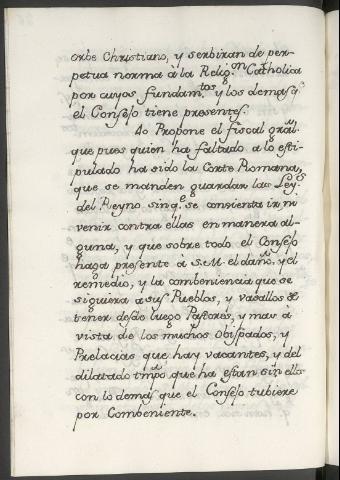 orbe Christiano, y serbiran de per-
petua norma â la Relig.on Catholica
por cuyos fundam.tos y los demas q.e
el Consejo tiene presentes.
4o Propone el fiscal gral.
que pues quien ha faltado a lo esti-
pulado ha sido la Corte Romana,
que se manden guardar las Ley.s
del Reyno sin q.e se consienta ir, ni
venir contra ellas en manera al-
guna, y que sobre todo el Consejo
haga presente â S.M. el daño, y el
remedio, y la combeniencia que se
siguiera a sus Pueblos, y vasallos de
tener desde luego Pastores, y mas â
vista de los muchos Obispados, y
Prelacias que hay vacantes, y del
dilatado tmpo que ha estan sin ellos
con lo demas que el Consejo tubiere
por Combeniente.